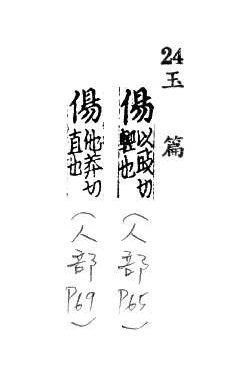 24
玉篇
傷 以豉切 輕也
(人部 P65)
傷 他莽切 直也
(人部 P69)